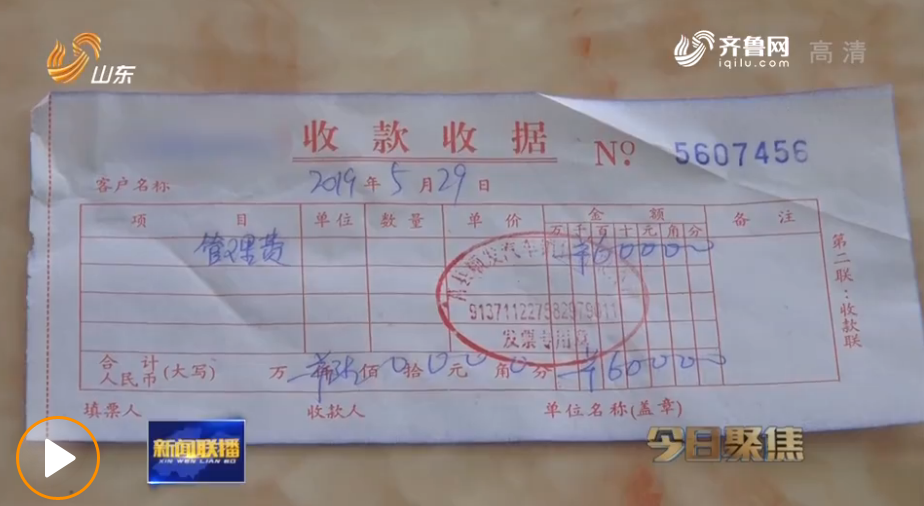 山东
齐鲁网 高清
iqilu.com
收款收据 No. 5607456
客户名称 2019年5月29日
项目 单位 数量 单价 金额 备注
万千百十元角分
管理费 ¥60000
913711227582979011
发票专用章
合计人民币(大写) 万 陆佰0拾0元0角0分 ¥60000
填票人 收款人 单位名称(盖章)
第二联:收款联
新闻联播
XIN WEN LIAN BO
今日聚焦